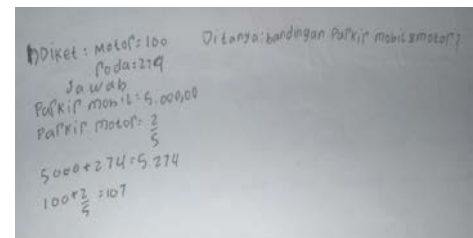 1) Diket : Motor = 100 Ditanya : bandingan Parkir mobil & motor?
roda = 274
Jawab
Parkir mobil = 5.000,00
Parkir motor = 2/5
5000 + 274 = 5.274
100 + 2/5 = 107